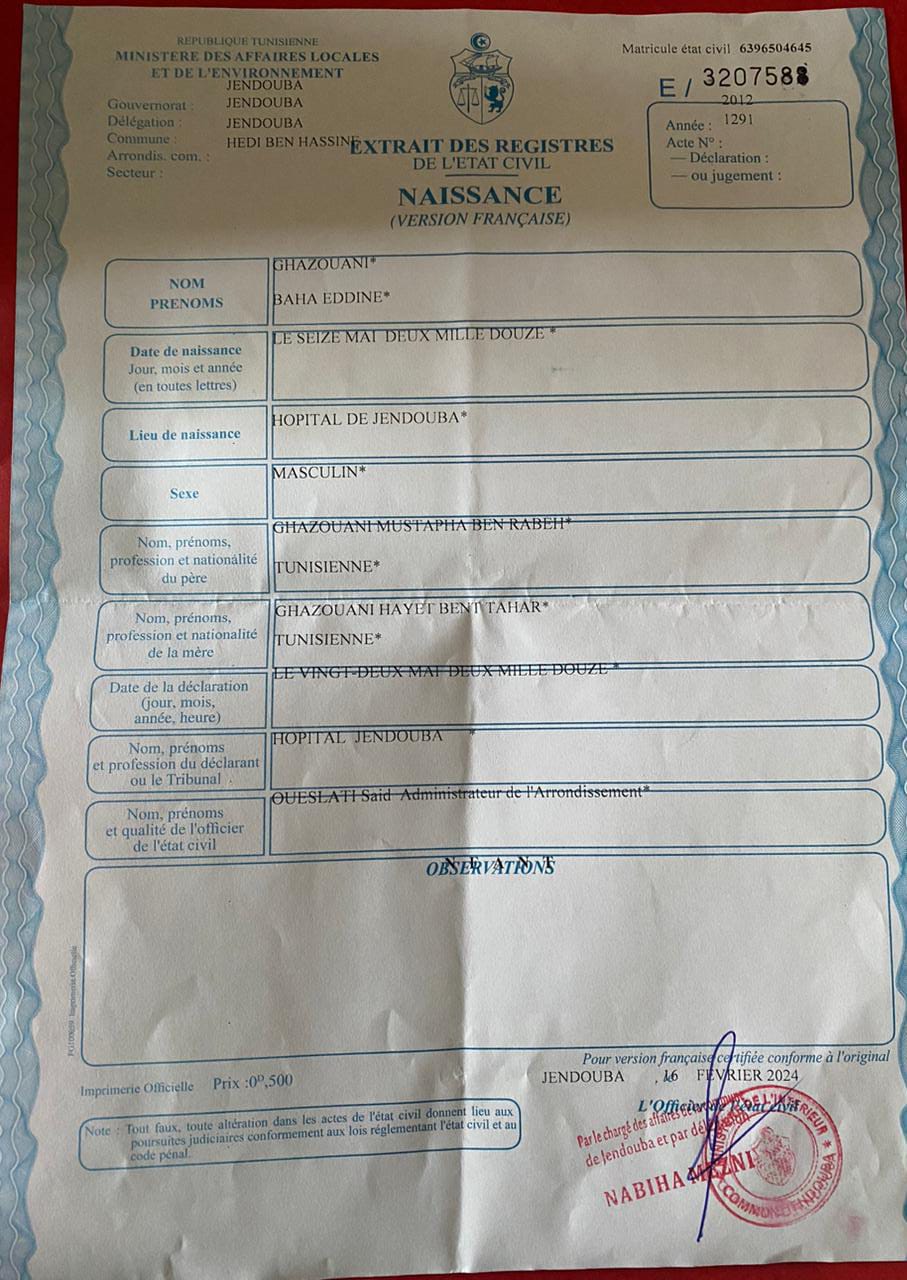 REPUBLIQUE TUNISIENNE
MINISTERE DES AFFAIRES LOCALES
ET DE L'ENVIRONNEMENT
JENDOUBA
Gouvernorat : JENDOUBA
Délégation : JENDOUBA
Commune : HEDI BEN HASSINE
Arrondis. com. :
Secteur :
Matricule état civil 6396504645
E / 3207588
2012
Année : 1291
Acte N° :
— Déclaration :
— ou jugement :
EXTRAIT DES REGISTRES
DE L'ETAT CIVIL
NAISSANCE
(VERSION FRANÇAISE)
NOM
PRENOMS
GHAZOUANI*
BAHA EDDINE*
Date de naissance
Jour, mois et année
(en toutes lettres)
LE SEIZE MAI DEUX MILLE DOUZE *
Lieu de naissance
HOPITAL DE JENDOUBA*
Sexe
MASCULIN*
Nom, prénoms,
profession et nationalité
du père
GHAZOUANI MUSTAPHA BEN RABEH*
TUNISIENNE*
Nom, prénoms,
profession et nationalité
de la mère
GHAZOUANI HAYET BENT TAHAR*
TUNISIENNE*
Date de la déclaration
(jour, mois,
année, heure)
LE VINGT-DEUX MAI DEUX MILLE DOUZE *
Nom, prénoms
et profession du déclarant
ou le Tribunal
HOPITAL JENDOUBA *
Nom, prénoms
et qualité de l'officier
de l'état civil
OUESLATI Said Administrateur de l'Arrondissement*
OBSERVATIONS
N E A N T
Imprimerie Officielle Prix :0ᴰ,500
Note : Tout faux, toute altération dans les actes de l'état civil donnent lieu aux
poursuites judiciaires conformement aux lois réglementant l'état civil et au
code pénal.
Pour version française certifiée conforme à l'original
JENDOUBA , le 16 FEVRIER 2024
L'Officier de l'état civil
Par le chargé des affaires de
de Jendouba et par
NABIHA MAZNI
DE L'INTERIEUR *
COMMUNE JENDOUBA